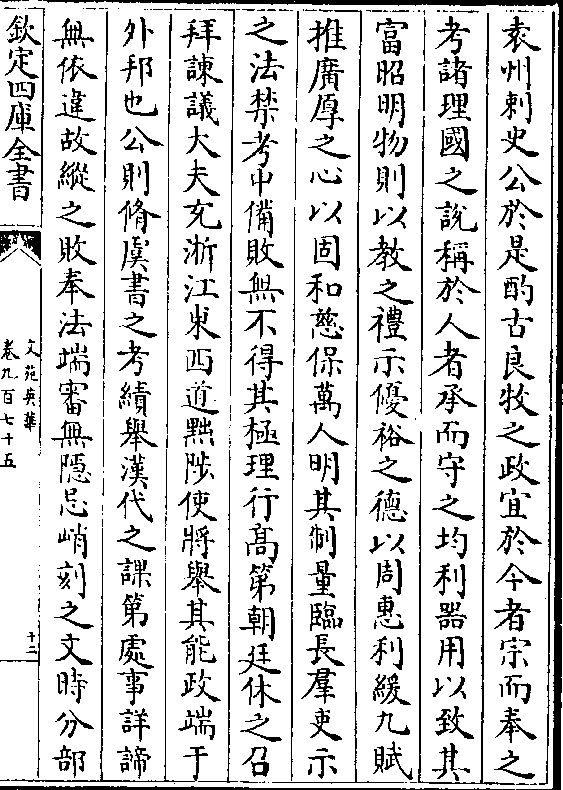 袁州刺史公於是酌古良牧之政宜於今者宗而奉之
考諸理國之說稱於人者承而守之均利器用以致其
富昭明物則以教之禮示優裕之德以周惠利緩九賦
推廣厚之心以固和慈保萬人明其制量臨長羣吏示
之法禁考中備敗無不得其極理行髙第朝廷休之召
拜諫議大夫充浙江東西道黜陟使將舉其能政端于
外邦也公則脩虞書之考績舉漢代之課第處事詳諦
無依違故縱之敗奉法端審無隱忌峭刻之文時分部
欽定四庫全書
文苑英華
卷九百七十五
十二